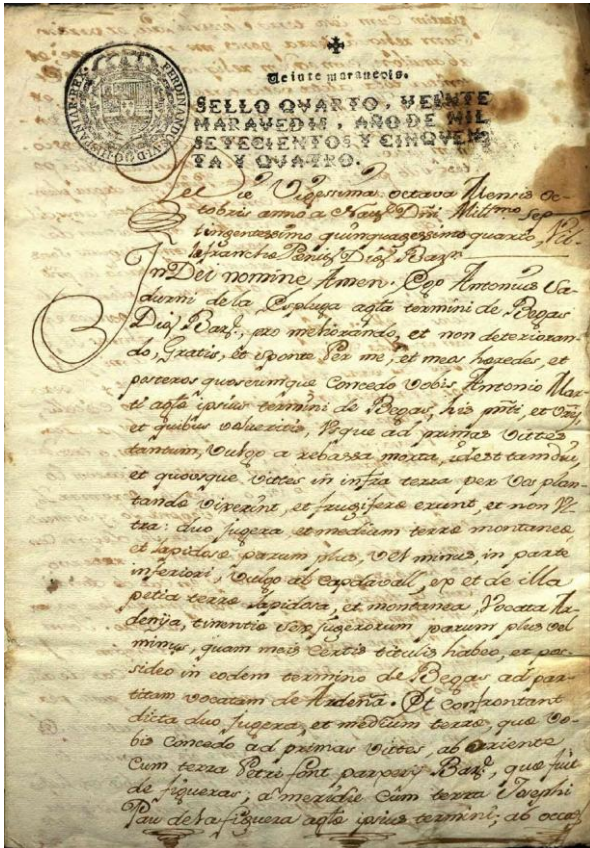 FERDINANDUS VI D G HISPANIAR REX
Veinte maravedis.
SELLO QVARTO, VEINTE
MARAVEDIS, AÑO DE MIL
SETECIENTOS Y CINQVEN
TA Y QVATRO.
Die Vigessima octava Mensis Oc-
tobris anno a Nat Dñi Mill.mo Sep
tingentessimo quinquagessimo quarto, Vil-
lefranche Penit Dioʃ Barⁿ
In Dei nomine Amen. Ego Antonius Sa-
durni de la Espluga agta termini de Begas
Dioʃ Barʃ, pro meliorando, et non deterioran-
do, Gratis, et sponte Per me, et meos heredes, et
posteros quoscumque Concedo vobis Antonio Mar-
ti agta ipsius termini de Begas, his pñti, et Vris,
et quibus volueritis, Vsque ad primas vittes
tantum, vulgo a rebassa morta, idest tamdiu,
et quousque vittes in infra terra per Vos plan-
tande viverint, et frugifere erunt, et non Vl-
tra: duo jugera et medium terre montanee,
et lapidose parum plus, Vel minus, in parte
inferiori, vulgo al capdavall, ex et de illa
petia terre lapidosa, et montanea, Vocata Ar-
denya, tinentie sex jugerorum parum plus vel
minus, quam meis Certis titulis habeo, et pos-
sideo in eodem termino de Begas ad par-
titam vocatam de Ardeña. Et confrontant
dicta duo Jugera, et medium terre, que vo-
bis Concedo ad primas vittes, ab oriente
Cum terra Petri font parperij Barʃ, que fuit
de figueras; a meridie Cum terra Josephi
Pau de la figuera agta ipsius termini; ab occa-